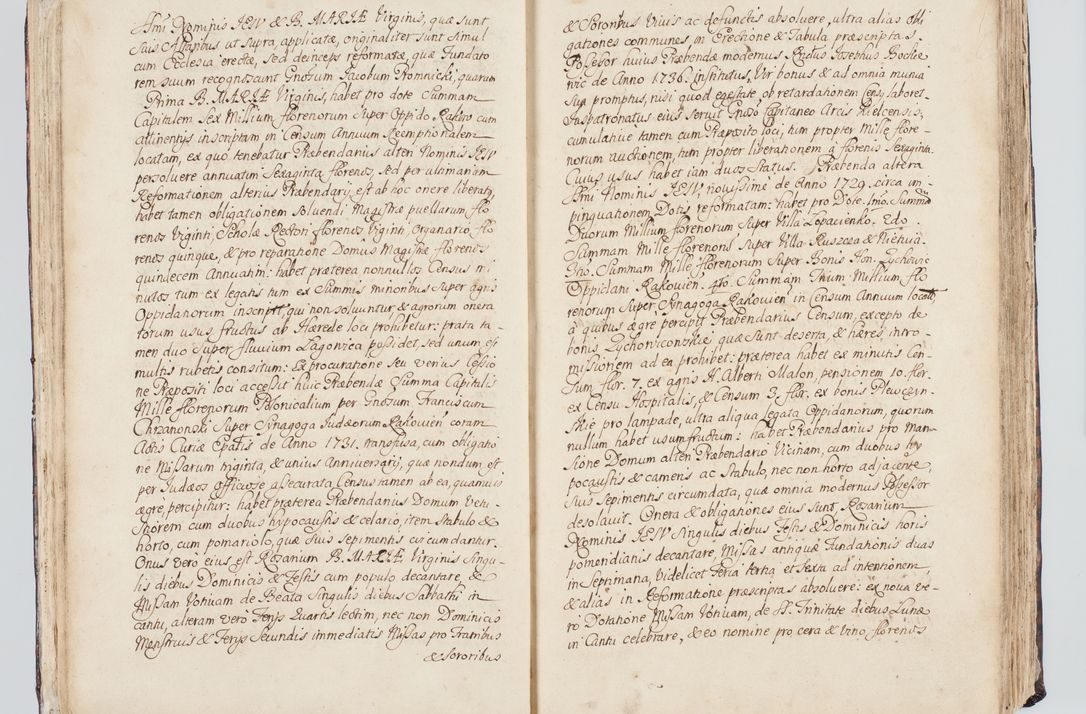 Ssmi Nominis JESV & B. MARIÆ Virginis, quæ sunt
suis Altaribus ut supra, applicatæ, originaliter sunt simul
cum Ecclesia erectæ, sed deinceps reformatæ, quæ Fundato
rem suum recognoscunt Gnosum Jacobum Gromnicki, quarum
Prima B. MARIÆ Virginis, habet pro dote Summam
Capitalem Sex Millium florenorum super Oppido Rakow cum
attinentijs inscriptam in Censum Annuum Reemptionalem
locatam, ex quo tenebatur Præbendarius alteri Nominis JESV
persolvere annuatim Sexaginta florenos, sed per ultimariam
Reformationem alterius Præbendarij, est ab hoc onere liberatus
habet tamen obligationem solvendi Magistræ puellarum flo
renos Viginti, Scholæ Rectori florenos Viginti, Organario, flo
renos quinque, & pro reparatione Domus Magistræ florenos
quindecem Annuatim: habet præterea nonnullos Census mi
nutos tum ex legatis tum ex Summis minoribus super agris
Oppidanorum inscriptis, qui non solvuntur & agrorum onera
torum usus fructus ab Hærede loci prohibetur: prata ta-
men duo super fluvium Lagonica possidet, sed unum est
multis rubetis consitum: Ex procuratione seu verius Cessio
ne Præpositi loci accessit huic Præbendæ Summa Capitalis
Mille florenorum Polonicalium per Gnosum Franciscum
Chrzanowski super Synagoga Judæorum Rakovien coram
Actis Curiæ Epalis de Anno 1731. transfusa, cum obligatio
ne Missarum triginta, & unius Anniversarij, quæ nondum est
per Judæos officiose assecurata, Census tamen ab ea, quamvis
ægre, percipitur: habet præterea Præbendarius Domum vetu
stiorem cum duobus hypocaustis & celario, item stabulo &
horto, cum pomariolo, quæ suis sepimentis circumdantur.
Onus vero eius est Rosarium B. MARIÆ Virginis singu-
lis diebus Dominicis & Festis cum populo decantare, &
Missam Votivam de Beata singulis diebus Sabbathi in
cantu, alteram vero Ferijs Quartis lectim, nec non Dominicis
Menstruis & Ferijs Secundis immediatis Missas pro Fratribus
& Sororibus
& Sororibus Vivis ac defunctis absolvere, ultra alias obli
gationes communes, in Erectione & Tabula præscriptas.
Possessor huius Præbendæ modernus Rndus Josephus Bockie
wic de Anno 1736. institutus, Vir bonus & ad omnia munia
sua promptus, nisi quod egestate, ob retardationem Census laboret.
Juspatronatus eius servit Gnoso Capitaneo Arcis Kielcensis,
cumulative tamen cum Præposito loci, tum propter Mille flore-
norum auctionem, tum propter liberationem à florenis Sexaginta.
Cuius usus habet iam duos Status. Præbenda altera
Ssmi Nominis JESV, novissime de Anno 1729. circa im-
pinguationem Dotis reformatam: habet pro Dote. Imo. Summam
Duorum Millium florenorum super Villa Lopacienko. 2do.
Summam Mille florenoru super Villa Ruszcza & Nietuia.
3tio. Summam Mille florenorum super Bonis Hon. Zychowic
Oppidani Rakovien. 4to. Summam Trium Millium flo
renorum super Synagoga Rakovien in Censum Annuum locatas,
à quibus ægre percipit Præbendarius Censum, excepto de
bonis Zychoviconskie quæ sunt deserta, & hæres, intro-
missionem ad ea prohibet: præterea habet ex minutis Cen-
sum flor. 7. ex agris H. Alberti Mallon, pensionem 10. flor.
ex Censu Hospitalis, & Censum 3. flor. ex bonis Plewczyn-
skie pro lampade, ultra aliqua Legata Oppidanorum, quorum
nullum habet usumfructum: habet Præbendarius pro man-
sione Domum alteri Præbendario Vicinam, cum duobus hy
pocaustis & cameris ac stabulo, nec non horto adjacente,
suis sepimentis circumdata, quæ omnia modernus Possessor
desolavit. Onera & obligationes eius sunt, Rosarium
Nominis JESV singulis diebus Festis & Dominicis horis
pomeridianis decantare, Missas antiquæ Fundationis duas
in Septimana, videlicet Feria tertia et sexta ad intentionem,
& alias in Reformatione præscriptas absolvere: ex nova ve-
ro Dotatione Missam Votivam, de SS. Trinitate diebus Lunæ
in Cantu celebrare, & eo nomine pro cera & vino, florenos